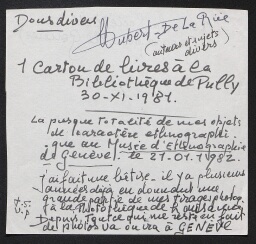 Dons divers
Hubert - De La Rüe
(auteurs et sujets
divers)
1 Carton de livres à la
Bibliothèque de Pully
30-XI-1981.
La presque totalité de mes objets
de caractère ethnographi-
que au Musée d'Ethnographie
de Genève. le 21.01.1982.
j'ai fait une bêtise. il y a plusieurs
années déjà en donnant une
grande partie de mes tirages photog.
à la Photothèque de
Depuis, tout ce qui me reste en fait
de photos va ou ira à GENÈVE